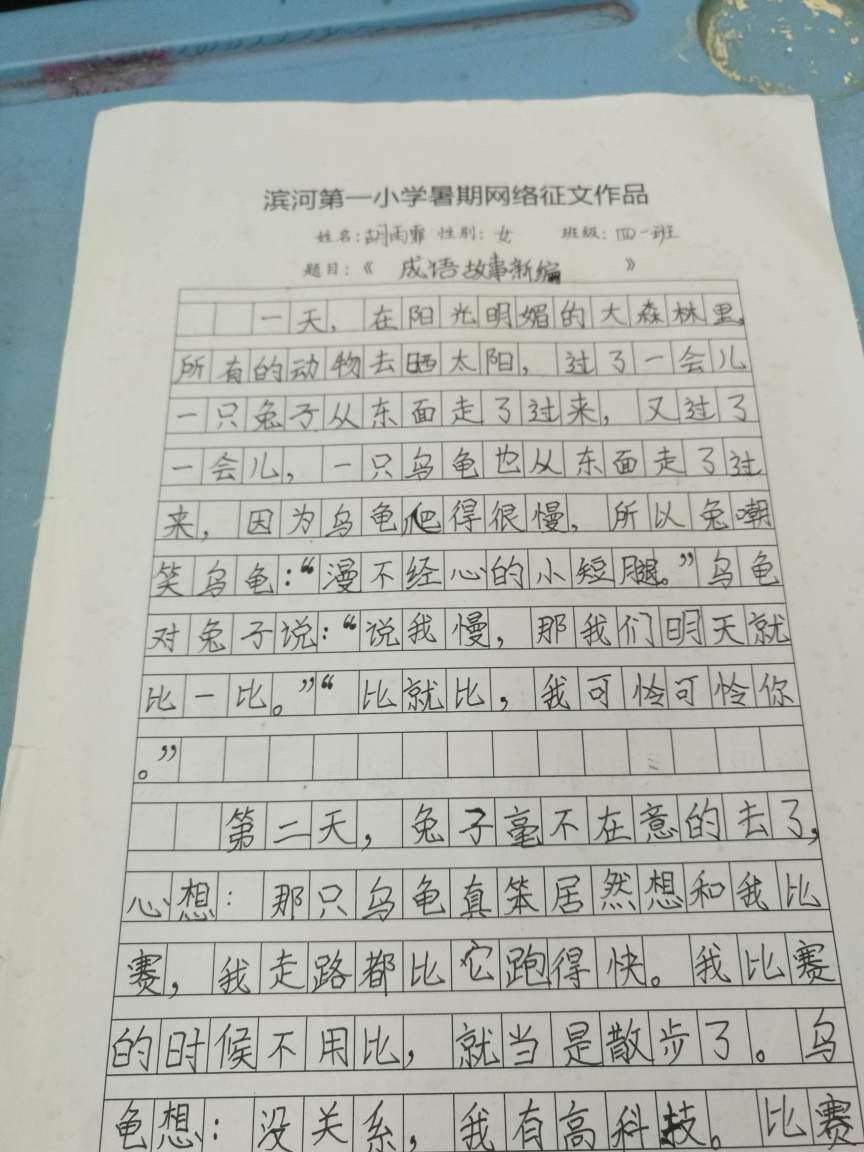 滨河第一小学暑期网络征文作品
姓名：胡雨霏 性别：女 班级：四一班
题目：《 成语故事新编 》
一天，在阳光明媚的大森林里，
所有的动物去晒太阳，过了一会儿
一只兔子从东面走了过来，又过了
一会儿，一只乌龟也从东面走了过
来，因为乌龟爬得很慢，所以兔嘲
笑乌龟：“漫不经心的小短腿。”乌龟
对兔子说：“说我慢，那我们明天就
比一比。”“比就比，我可怜可怜你
。”
第二天，兔子毫不在意的去了，
心想：那只乌龟真笨居然想和我比
赛，我走路都比它跑得快。我比赛
的时候不用比，就当是散步了。乌
龟想：没关系，我有高科技。比赛